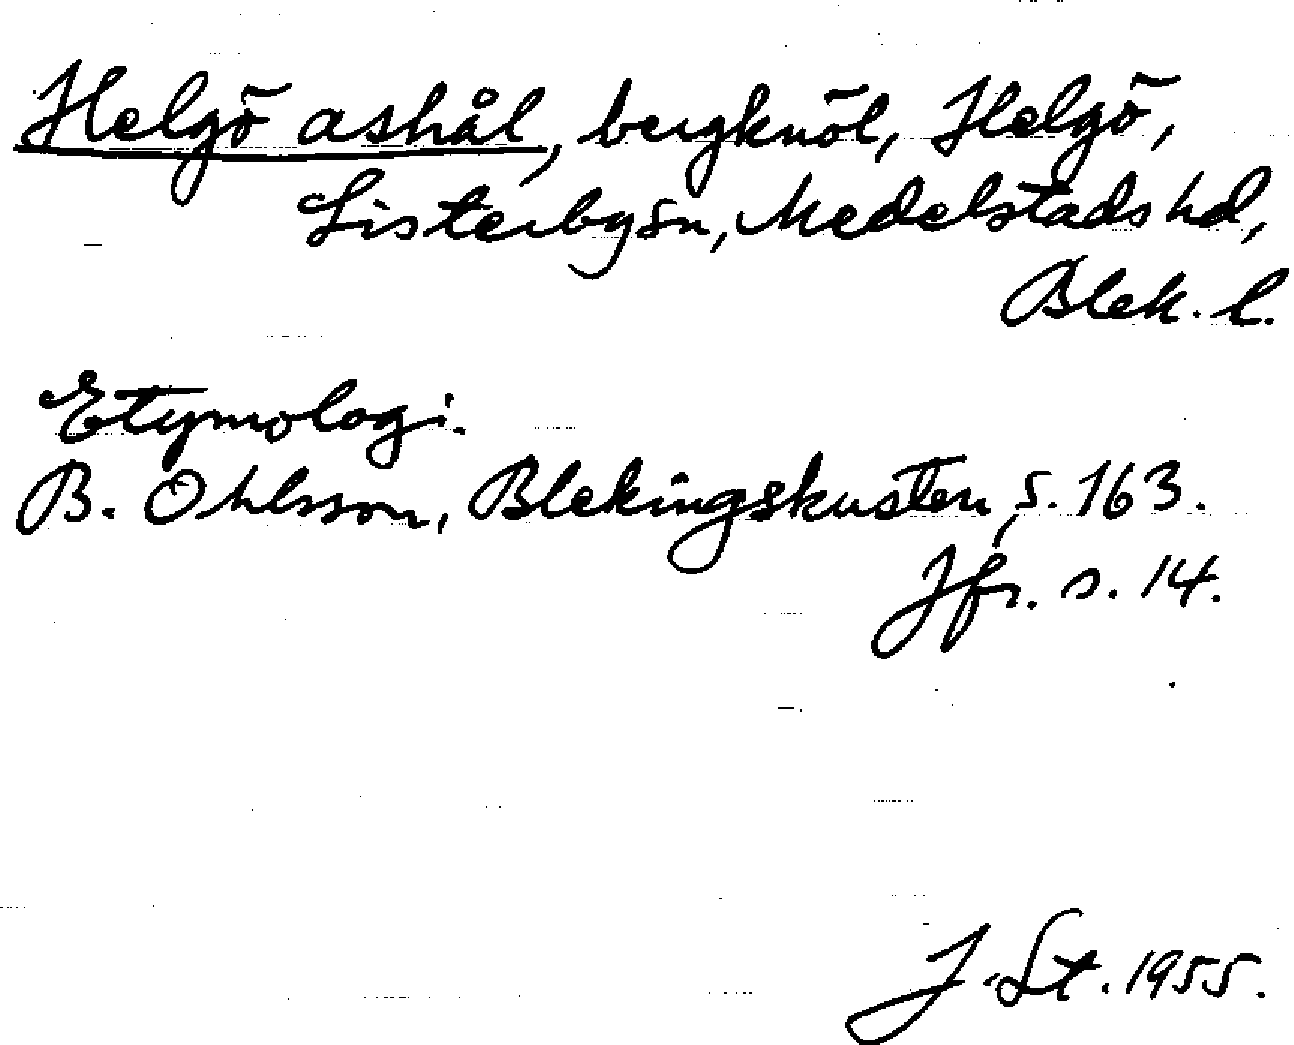 Helgö ashål, bergknöl, Helgö,
Listerby sn, Medelstads hd,
Blek. l.
Etymologi.
B. Ohlsson, Blekingskusten, s. 163.
Jfr. s. 14.
J. St. 1955.